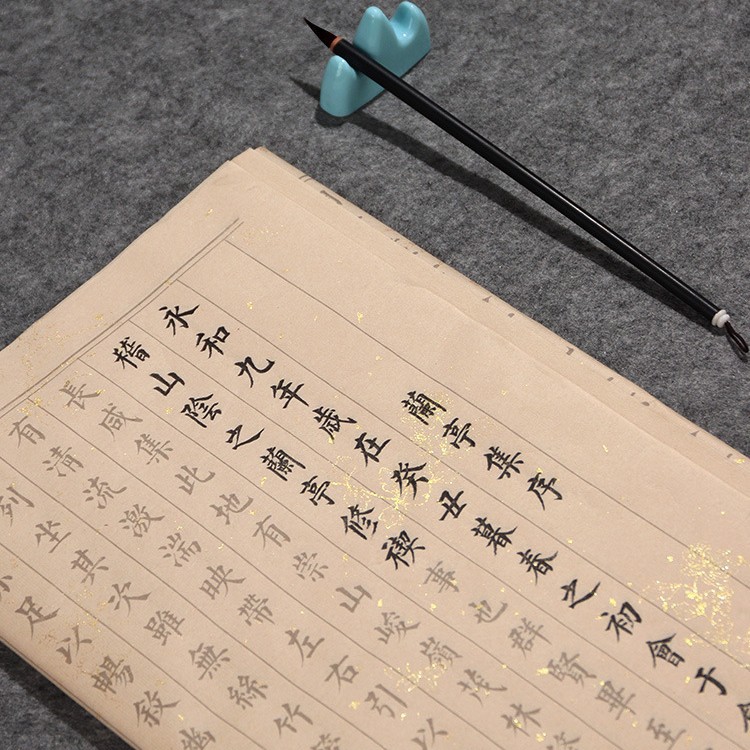 蘭亭集序
永和九年歲在癸丑暮春之初會于
稽山陰之蘭亭修禊事也群賢畢至
長咸集此地有崇山峻嶺茂林
有清流激湍映帶左右引以
列坐其次雖無絲竹
足以暢敘幽